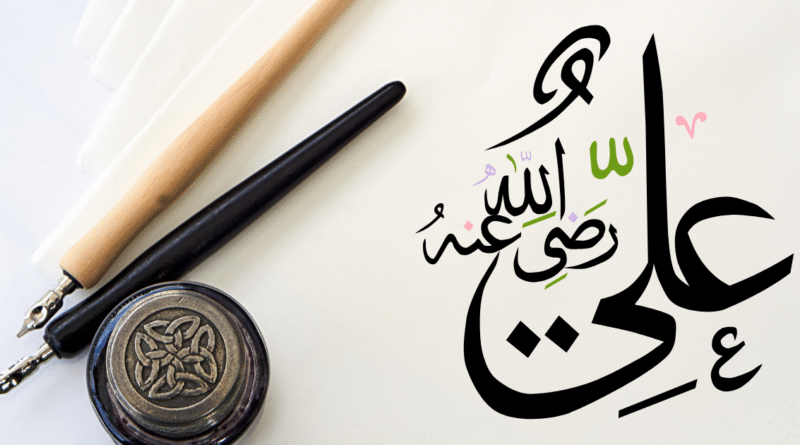 عَلِيٌّ رَضِيَ اللّٰهُ عَنهُ